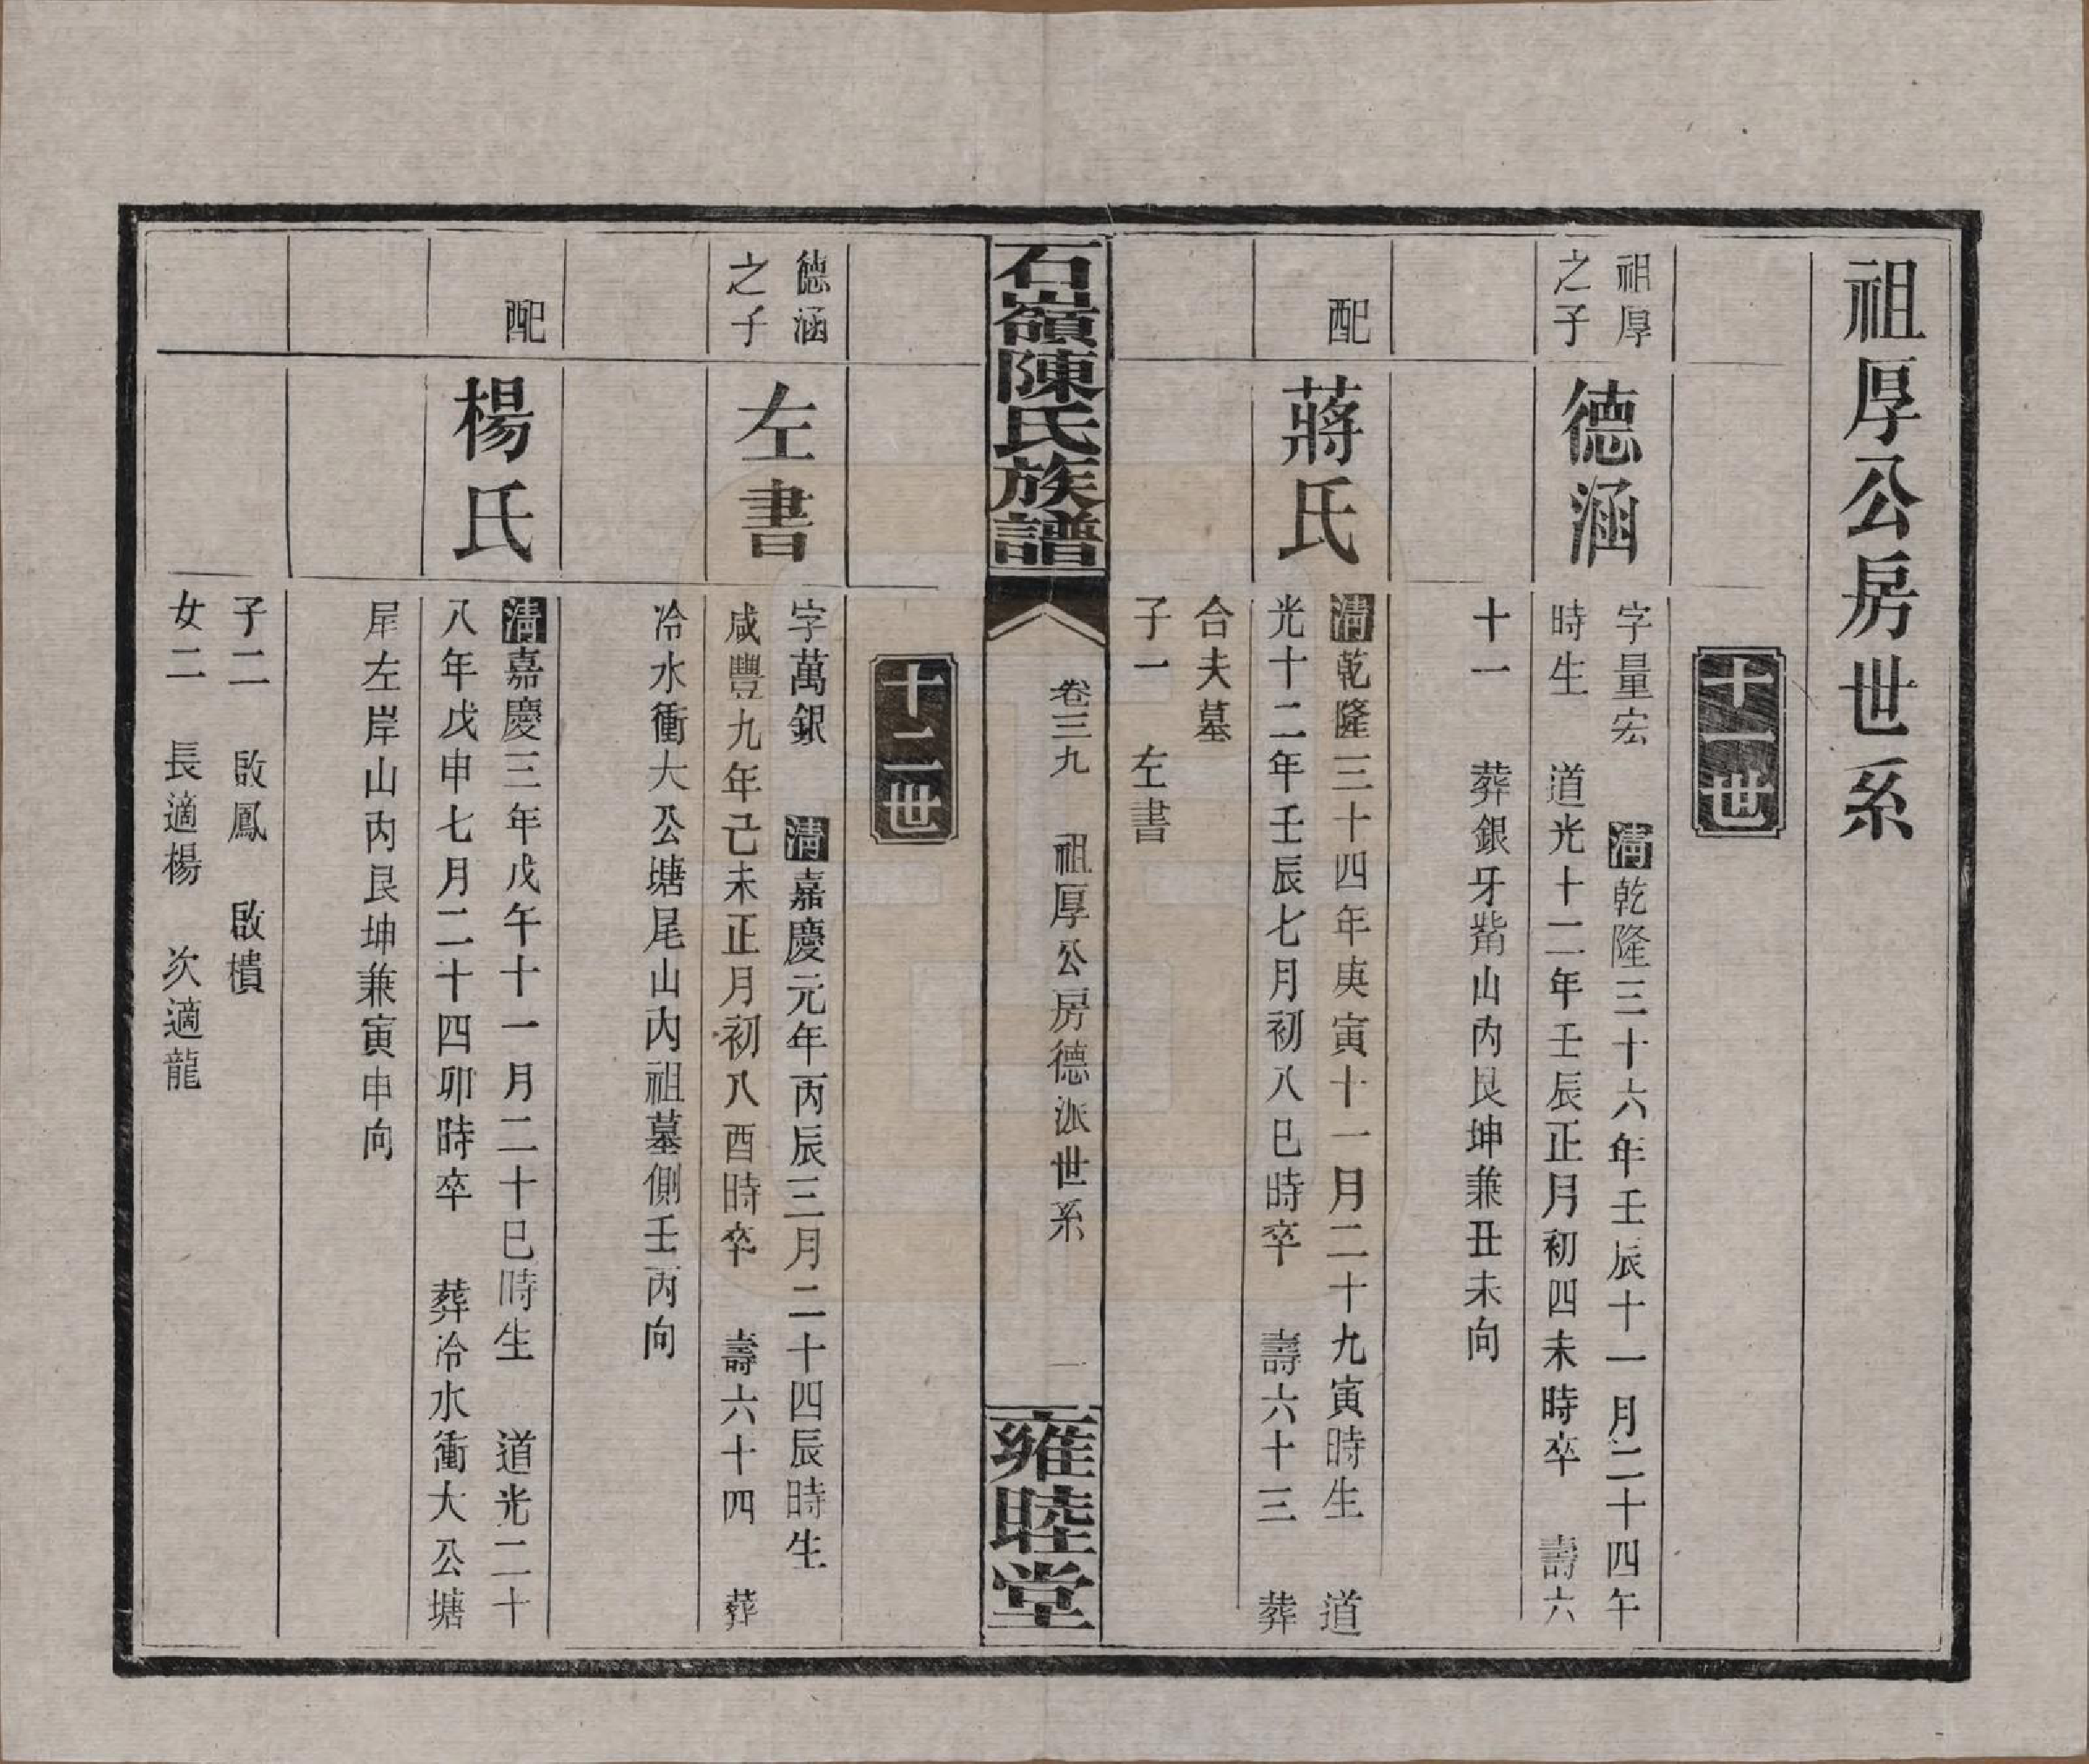 祖厚公房世系
十一世
祖厚
之子
德涵
字量宏 清乾隆三十六年壬辰十一月二十四午
時生 道光十二年壬辰正月初四未時卒 壽六
十一 葬銀牙觜山內艮坤兼丑未向
配
蔣氏
清乾隆三十四年庚寅十一月二十九寅時生 道
光十二年壬辰七月初八巳時卒 壽六十三 葬
合夫墓
子一 左書
石嶺陳氏族譜
卷三九 祖厚公房德派世系 一
雍睦堂
十二世
德涵
之子
左書
字萬銀 清嘉慶元年丙辰三月二十四辰時生
咸豐九年己未正月初八酉時卒 壽六十四 葬
冷水衝大公塘尾山內祖墓側壬丙向
配
楊氏
清嘉慶三年戊午十一月二十巳時生 道光二十
八年戊申七月二十四卯時卒 葬冷水衝大公塘
尾左岸山內艮坤兼寅申向
子二 啟鳳 啟樻
女二 長適楊 次適龍